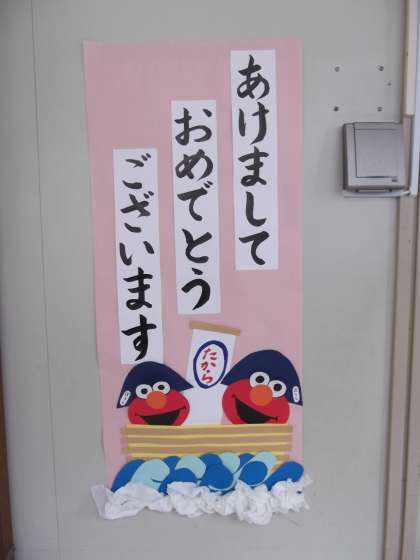 あけまして
おめでとう
ございます
たから